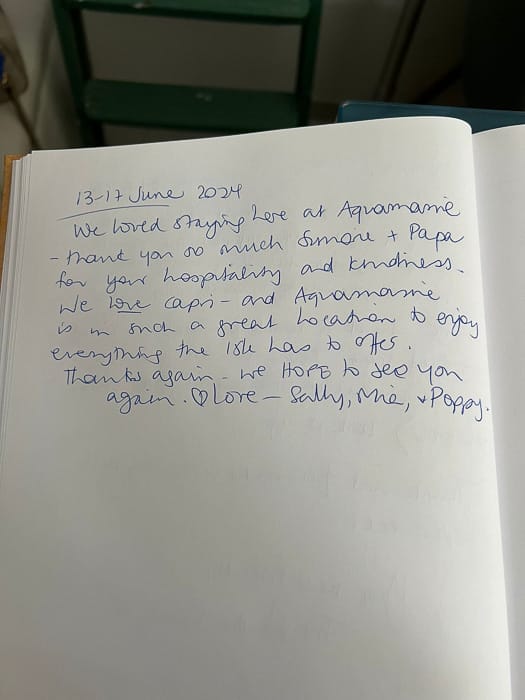 13-17 June 2024
We loved staying here at Aquamarine
- thank you so much Simone + Papa
for your hospitality and kindness.
We love Capri - and Aquamarine
is in such a great location to enjoy
everything the isle has to offer.
Thanks again - we HOPE to see you
again. ♡ Love - Sally, + Poppy.